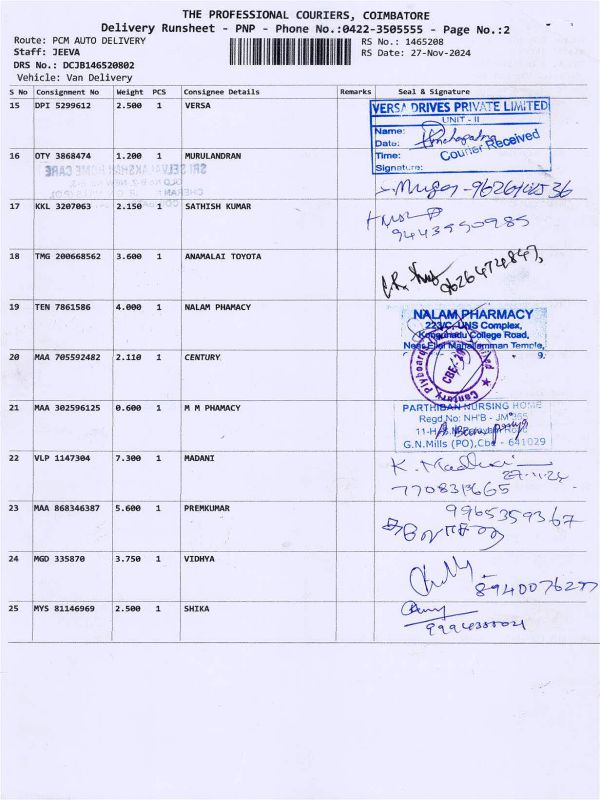 THE PROFESSIONAL COURIERS, COIMBATORE
Delivery Runsheet - PNP - Phone No.:0422-3505555 - Page No.:2
Route: PCM AUTO DELIVERY RS No.: 1465208
Staff: JEEVA RS Date: 27-Nov-2024
DRS No.: DCJB146520802
Vehicle: Van Delivery
S No Consignment No Weight PCS Consignee Details Remarks Seal & Signature
15 DPI 5299612 2.500 1 VERSA
VERSA DRIVES PRIVATE LIMITED
UNIT - II
Name:
Date:
Time: Courier Received
Signature:
16 OTY 3868474 1.200 1 MURULANDRAN
SRI SELVALAKSHMI HOME CARE
17 KKL 3207063 2.150 1 SATHISH KUMAR
9443550985
18 TMG 200668562 3.600 1 ANAMALAI TOYOTA
19 TEN 7861586 4.000 1 NALAM PHAMACY
NALAM PHARMACY
223/C, UNS Complex,
Kongunadu College Road,
20 MAA 705592482 2.110 1 CENTURY
21 MAA 302596125 0.600 1 M M PHAMACY
PARTHIBAN NURSING HOME
Regd No: NH'B - JM
G.N.Mills (PO), Cbe - 641029
22 VLP 1147304 7.300 1 MADANI
27.11.24
23 MAA 868346387 5.600 1 PREMKUMAR
9965359367
24 MGD 335870 3.750 1 VIDHYA
25 MYS 81146969 2.500 1 SHIKA